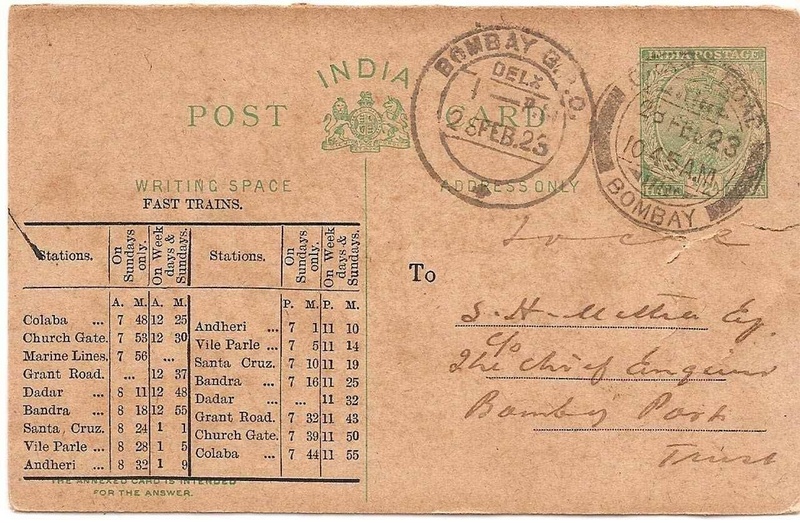 INDIA
POST CARD
WRITING SPACE
ADDRESS ONLY
INDIA POSTAGE
BOMBAY G.P.O.
DELY
28 FEB. 23
28 FEB 23
10.45 A.M.
BOMBAY
FAST TRAINS.
Stations. On Sundays only. On Week days & Sundays. Stations. On Sundays only. On Week days & Sundays.
A. M. A. M.
Colaba ... 7 48 12 25
Church Gate. 7 53 12 30
Marine Lines. 7 56 ...
Grant Road. ... 12 37
Dadar ... 8 11 12 48
Bandra ... 8 18 12 55
Santa Cruz. 8 24 1 1
Vile Parle ... 8 28 1 5
Andheri ... 8 32 1 9
P. M. P. M.
Andheri ... 7 1 11 10
Vile Parle ... 7 5 11 14
Santa Cruz. 7 10 11 19
Bandra ... 7 16 11 25
Dadar ... ... 11 32
Grant Road. 7 32 11 43
Church Gate. 7 39 11 50
Colaba ... 7 44 11 55
THE ANNEXED CARD IS INTENDED
FOR THE ANSWER.
To
S. H. Mehta Esq.
c/o
The Chief Engineer
Bombay Port
Trust